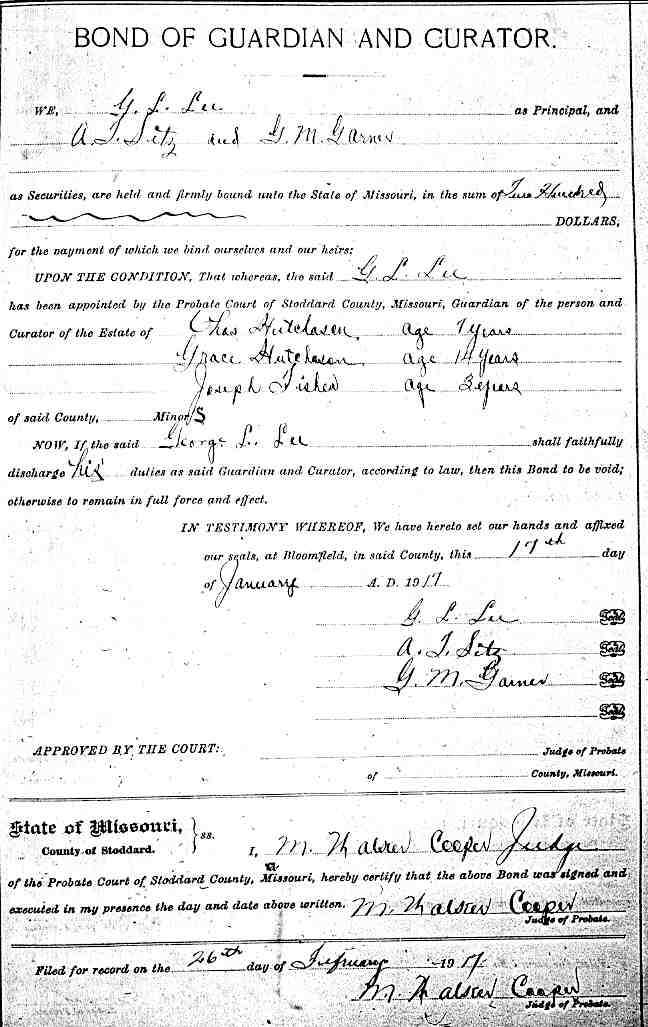 BOND OF GUARDIAN AND CURATOR.
WE, G. L. Lee as Principal, and
A. T. Sitz and G. M. Garner
as Securities, are held and firmly bound unto the State of Missouri, in the sum of Two Hundred
DOLLARS,
for the payment of which we bind ourselves and our heirs:
UPON THE CONDITION, That whereas, the said G. L. Lee
has been appointed by the Probate Court of Stoddard County, Missouri, Guardian of the person and
Curator of the Estate of Chas Hutchason, age 7 years
Grace Hutchason age 14 years
Joseph Fisher age 3 years
of said County, Minors
NOW, If the said George L. Lee shall faithfully
discharge his duties as said Guardian and Curator, according to law, then this Bond to be void;
otherwise to remain in full force and effect.
IN TESTIMONY WHEREOF, We have hereto set our hands and affixed
our seals, at Bloomfield, in said County, this 17th day
of January A. D. 1917
G. L. Lee Seal
A. T. Sitz Seal
G. M. Garner Seal
Seal
APPROVED BY THE COURT: Judge of Probate
of County, Missouri.
State of Missouri, } ss.
County of Stoddard. I, M. Cooper Judge
of the Probate Court of Stoddard County, Missouri, hereby certify that the above Bond was signed and
executed in my presence the day and date above written. M. Cooper
Judge of Probate.
Filed for record on the 26th day of February 1917
M. Cooper
Judge of Probate.